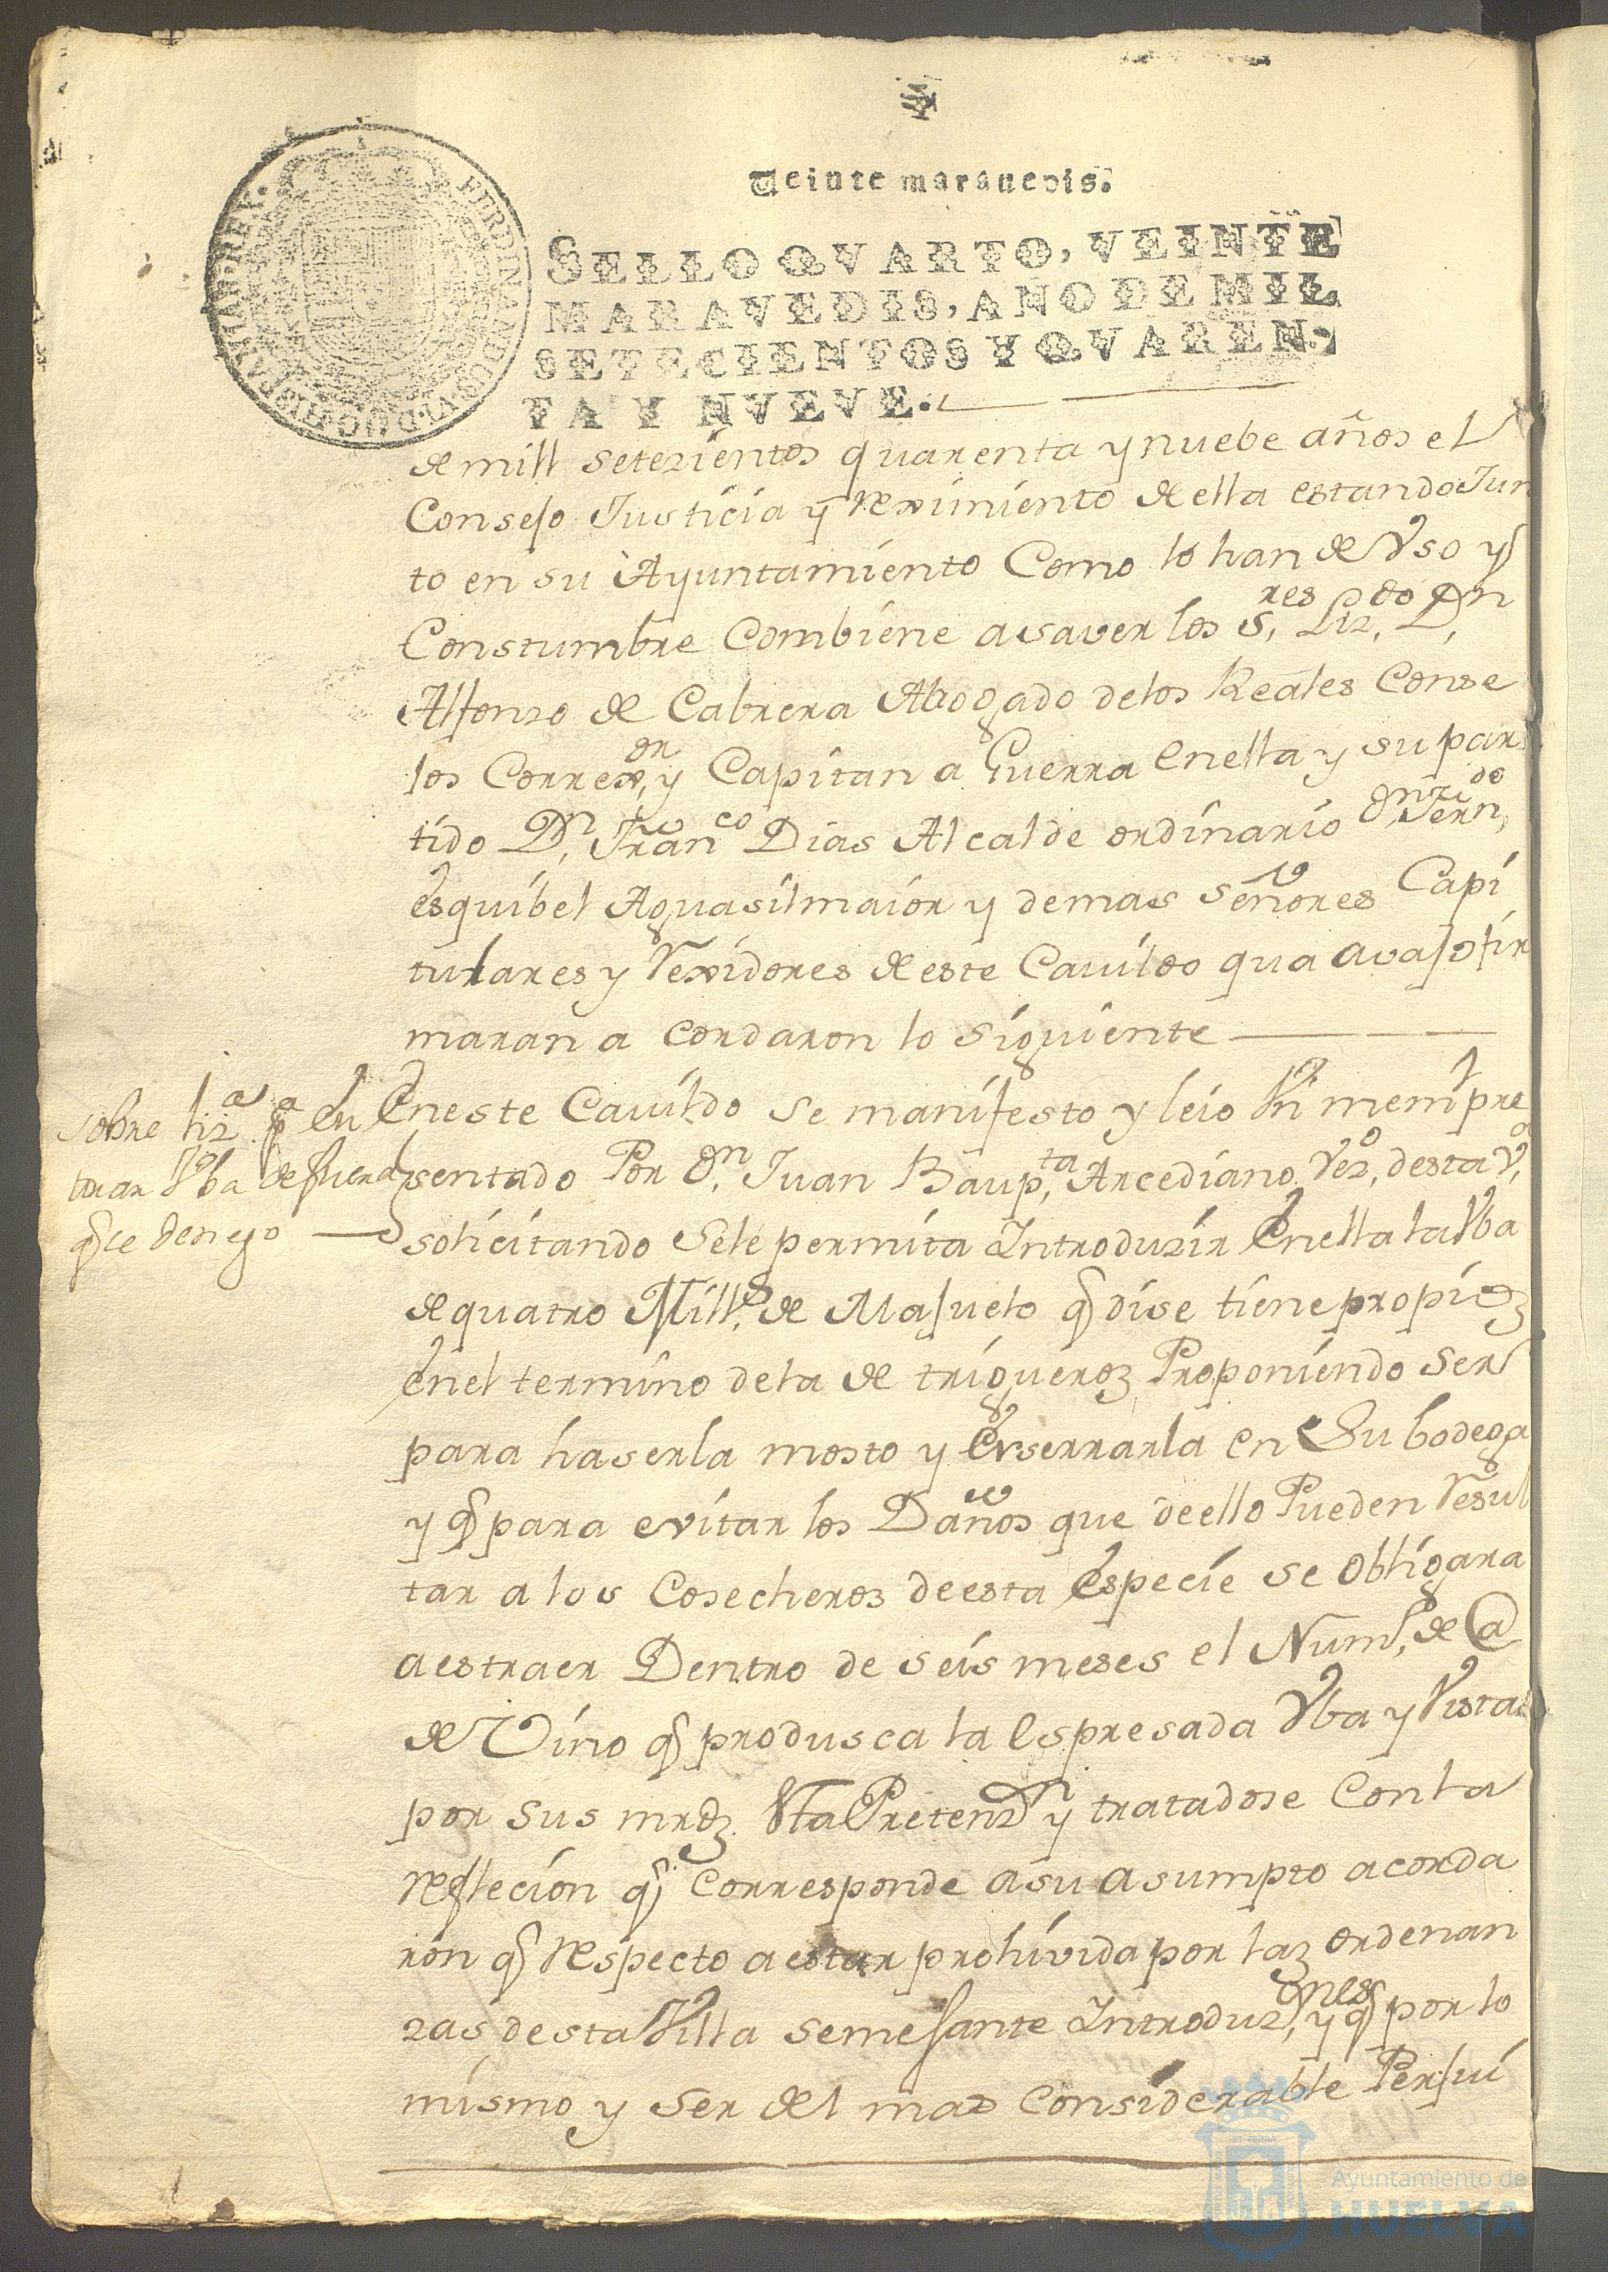 Veinte maravedis.
SELLO QVARTO, VEINTE
MARAVEDIS, AÑO DE MIL
SETECIENTOS Y QVAREN-
TA Y NVEVE.
de mill setezientos quarenta y nuebe años el
Consejo Justicia y reximiento de ella estando Jun
to en su Ayuntamiento Como lo han de Vso y
Constumbre Combiene a saver los S,res Liz,do D,n
Alfonzo de Cabrera Abogado de los Reales Conse
los Correx,or y Capitan a Guerra en ella y su par
tido D,n Fran,co Dias Alcalde ordinario D,n Fern,do
esquibel Aguasil maior y demas señores Capi
tulares y Rexidores de este Cavildo qua avajo fir
maran a cordaron lo siguiente
sobre liz,a p,a en
trar Vba de fuera
q se denego
En este Cavildo se manifesto y leio Vn mem,l pre
sentado Por D,n Juan Baup,ta Arcediano Vez,o desta V,a
solicitando Se le permita Introduzir En ella la Vba
de quatro Mill,s de Majuelo q dise tiene propios
En el termino de la de trigueros Proponiendo Ser
para haserla mosto y Enserrarla en Su bodega
y q para evitar los Daños que de ello Pueden Resul
tar a los Cosecheros de esta Especie se obligara
a estraer Dentro de seis meses el Num,o de @
de Vino q produsca la Espresada Vba y Vista
por sus mrds Vta Pretenz,n y tratadose Con la
refleción q Corresponde a su asumpto acorda
ron q respecto a estar prohivida por las ordenan
zas desta Villa semejante Introduz,ones y q por lo
mismo y ser del mas Considerable Perjui
Ayuntamiento de
HUELVA